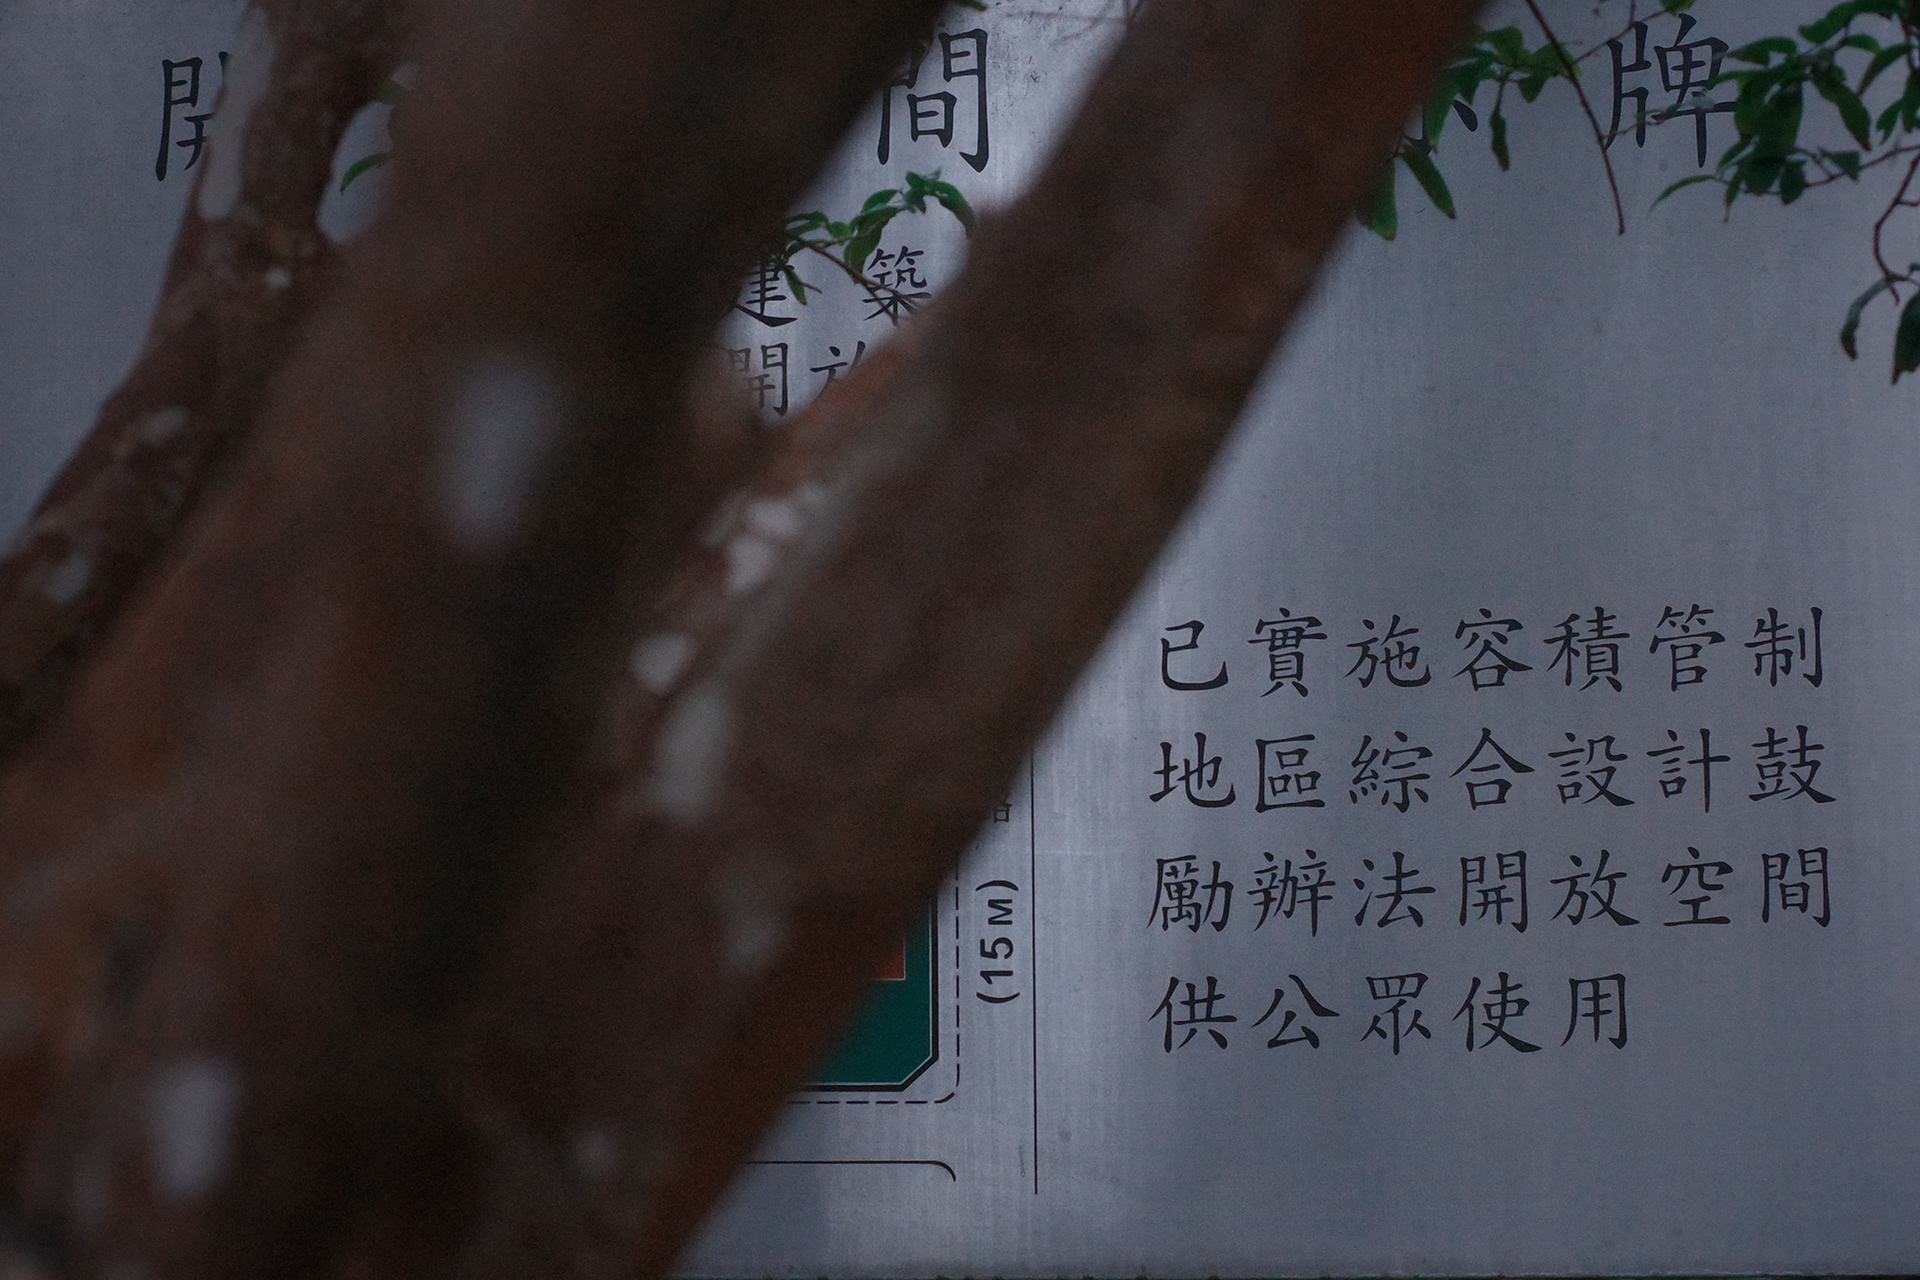 開 間 牌
建築
開放
已實施容積管制
地區綜合設計鼓
勵辦法開放空間
供公眾使用
(15M)